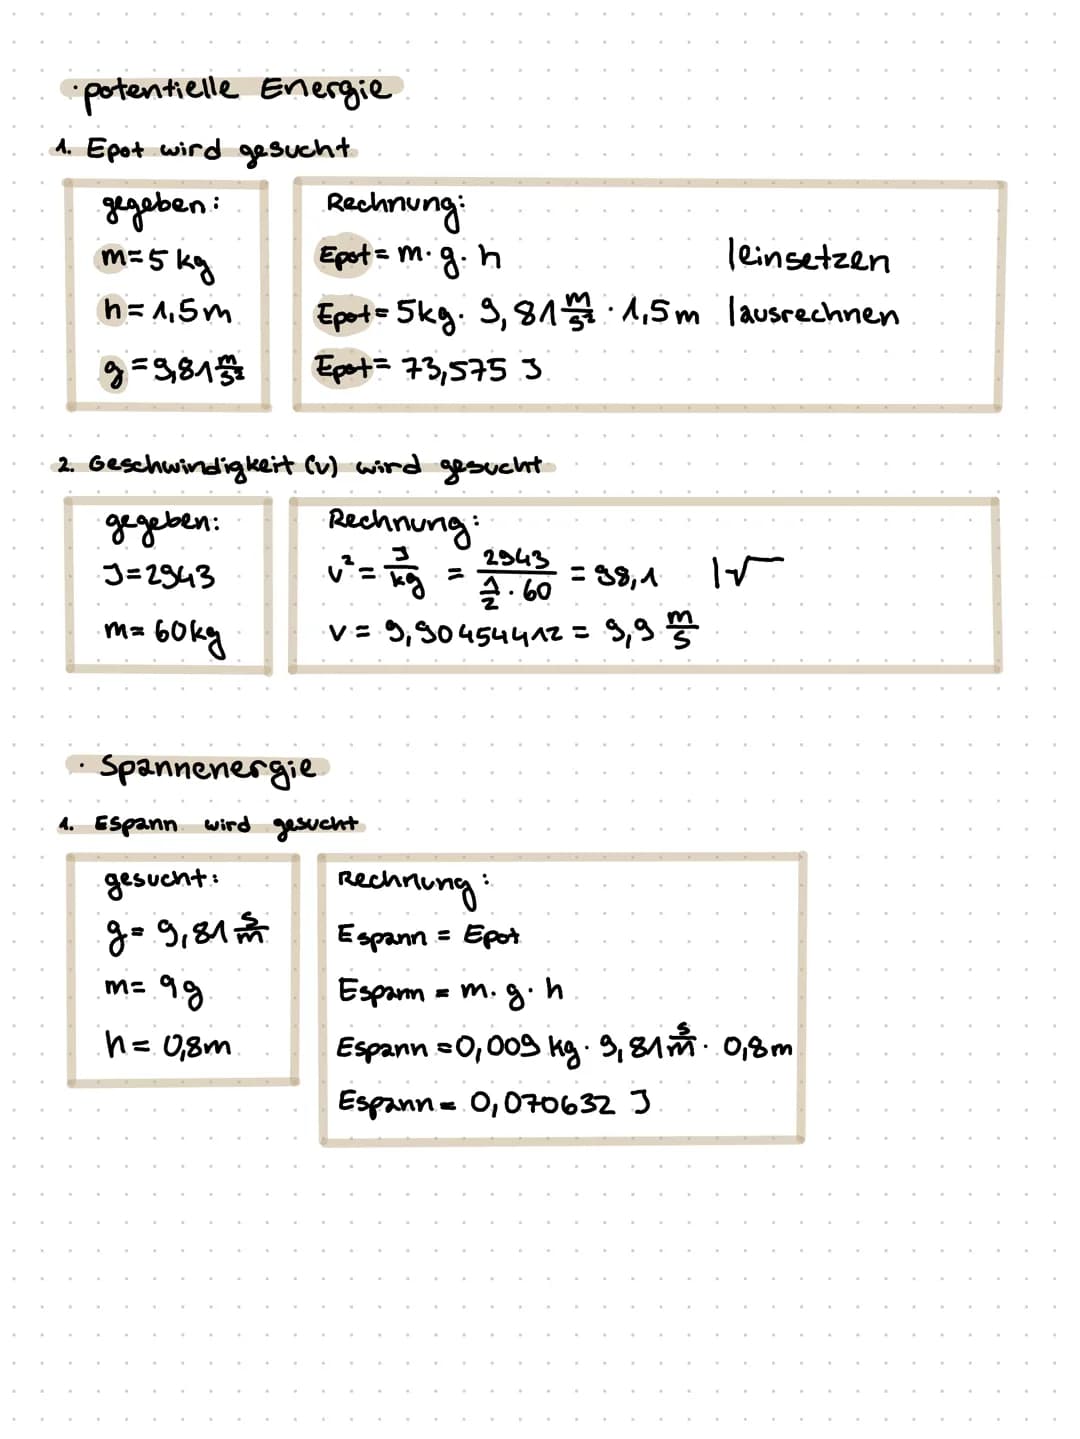 · potentielle Energie
1. Epot wird gesucht
gegeben:
m=5 kg
h=1,5m
g=9,81 m/s²
Rechnung:
Epot= m·g·h |einsetzen
Epot= 5kg· 9,81 m/s² · 1,5m |ausrechnen
Epot= 73,575 J
2. Geschwindigkeit (v) wird gesucht
gegeben:
J=2943
m= 60kg
Rechnung:
v² = J/kg = 2943/(1/2 · 60) = 98,1 |√
v = 9,90454412 = 9,9 m/s
· Spannenergie
1. Espann wird gesucht
gesucht:
g= 9,81 s/m
m= 9g
h= 0,8m
Rechnung:
Espann = Epot
Espann = m·g·h
Espann =0,009 kg· 9,81 s/m · 0,8m
Espann = 0,070632 J